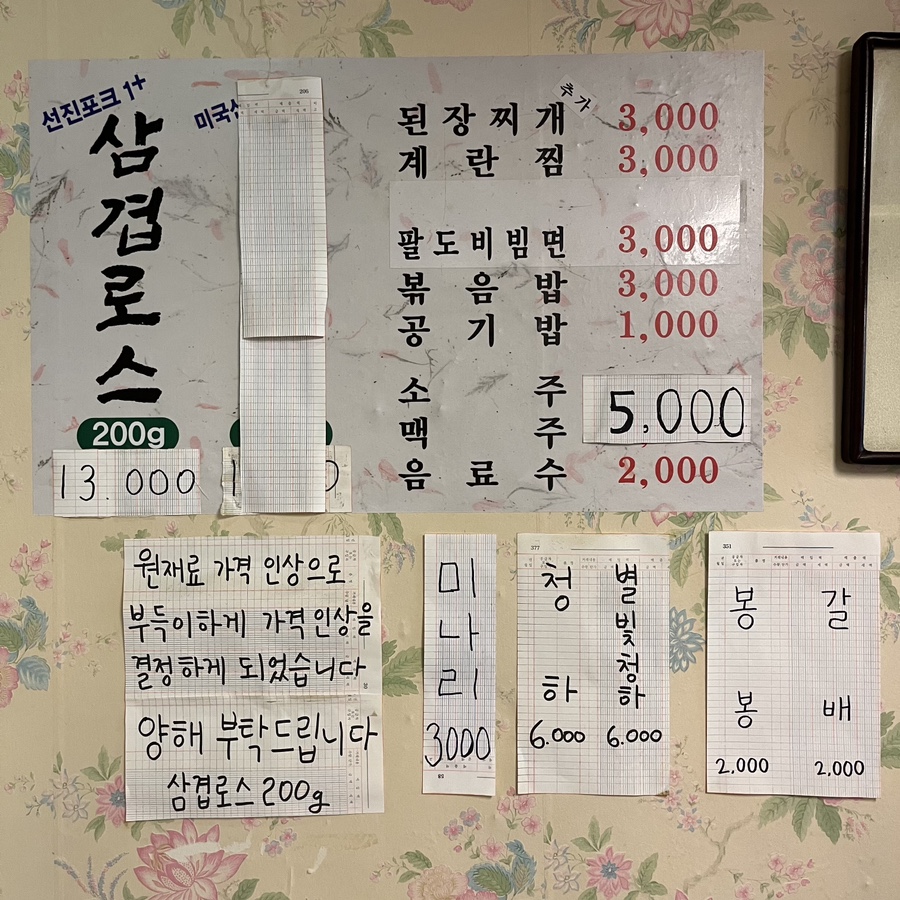 선진포크 1+
삼겹로스
200g
13.000
미국산
추가
된장찌개 3,000
계란찜 3,000
팔도비빔면 3,000
볶음밥 3,000
공기밥 1,000
소주
맥주
5,000
음료수 2,000
원재료 가격 인상으로
부득이하게 가격인상을
결정하게 되었습니다
양해 부탁드립니다
삼겹로스 200g
미나리
3000
377
청하
6.000
별빛청하
6.000
351
봉봉
2,000
갈배
2,000